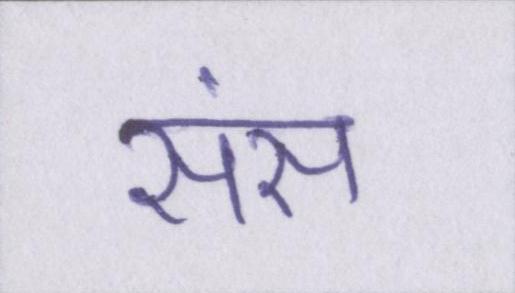 संस